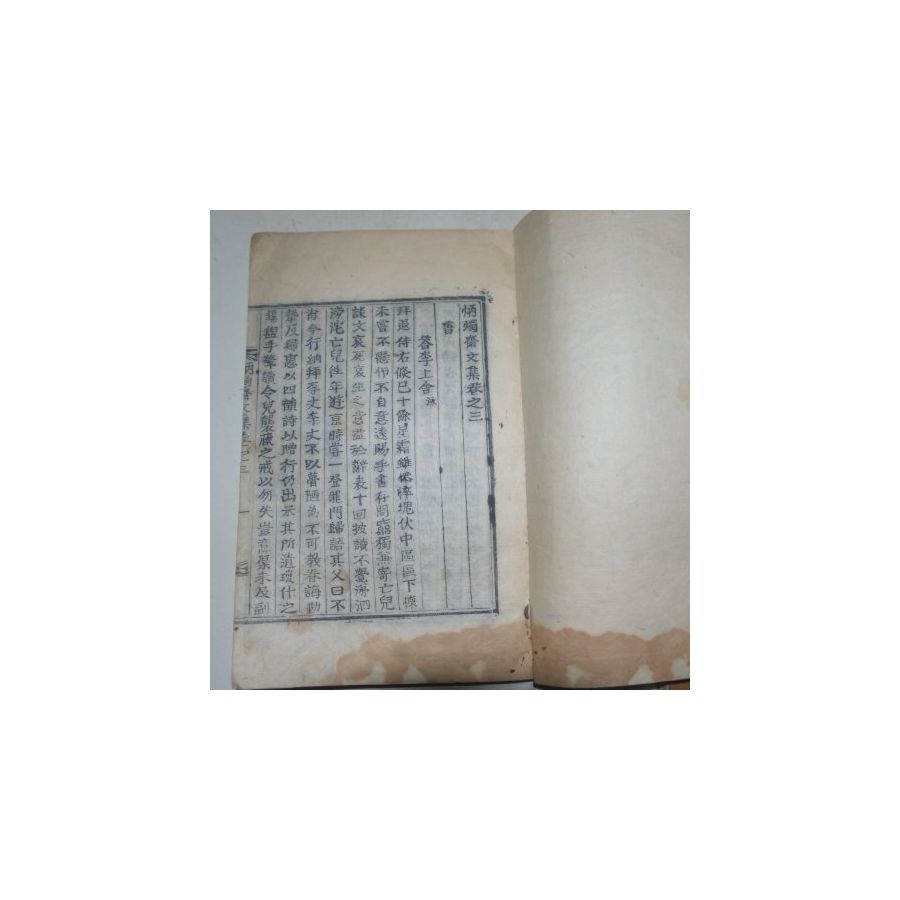 炳燭齋文集卷之三
書
答李上舍
拜退侍右倏已十餘星霜雖傺塊伏中區區下懷
未嘗不懸仰不自意遠賜手書存問窮獨兼寄亡兒
誄文哀死哀生之意溢於辭表十回披讀不覺涕泗
滂沱亡兒往年遊京時嘗一登龍門歸語其父曰不
肖參行納拜李丈李丈不以瞢陋為不可教眷誨勤
摯及歸惠以四韻詩以贈行仍出示其所遺瓊什之
盥手擎讀令兒襲藏之戒以勿失豈意墓未及副
炳燭齋文集卷之三
一